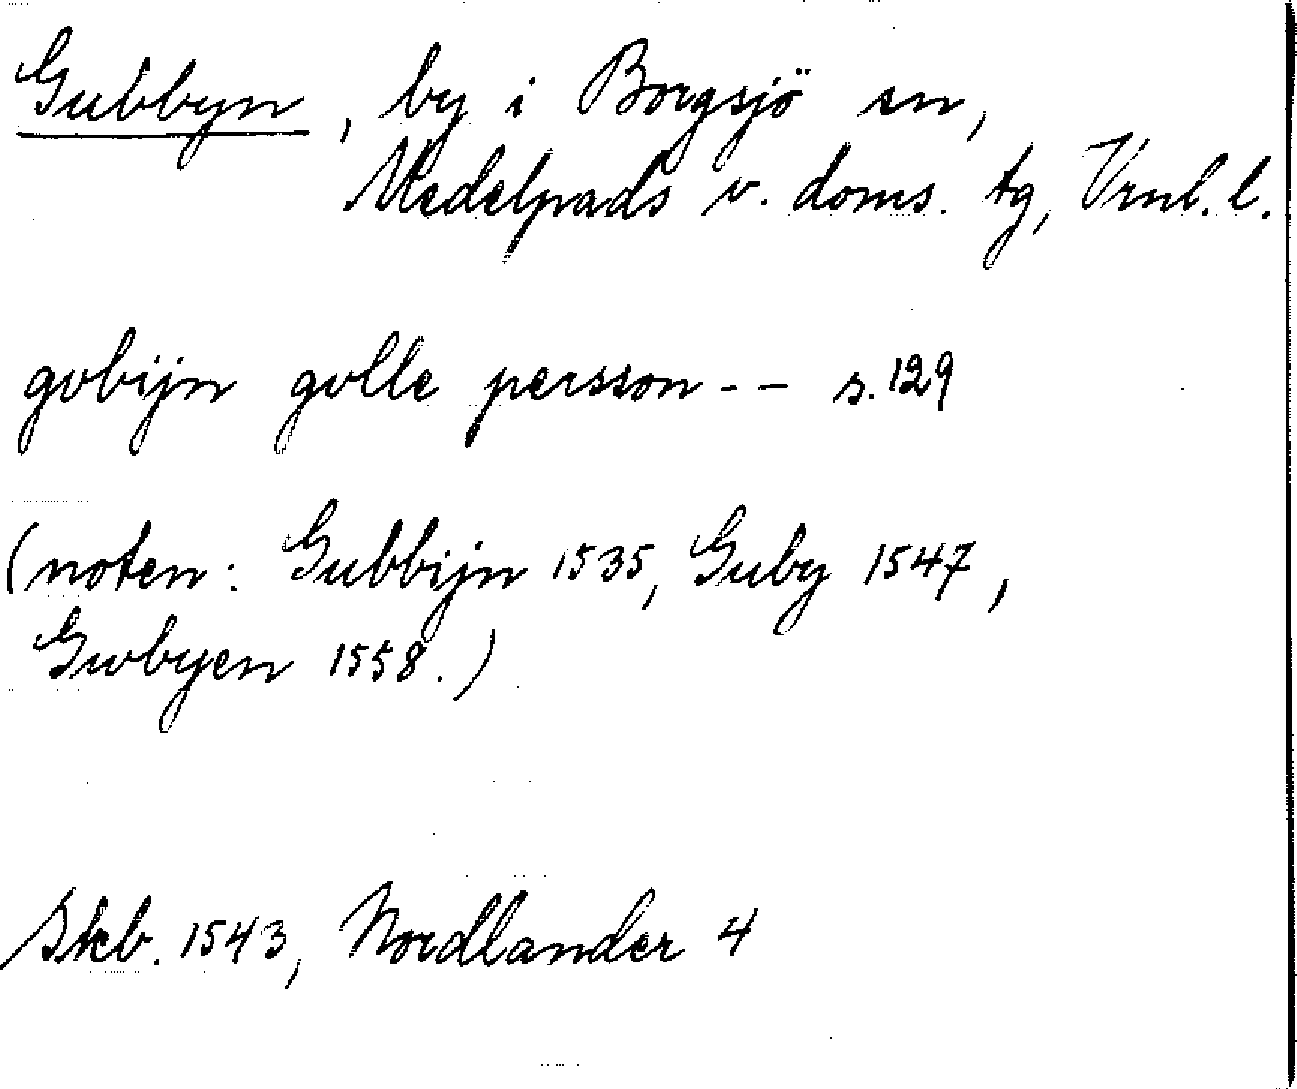 Gubbyn, by i Borgsjö sn,
Medelpads v. doms. tg, Vrnl. l.
gvbijn gvlle persson -- s. 129
(noten: Gubbijn 1535, Guby 1547,
Gwbyen 1558.)
Skb. 1543, Nordlander 4